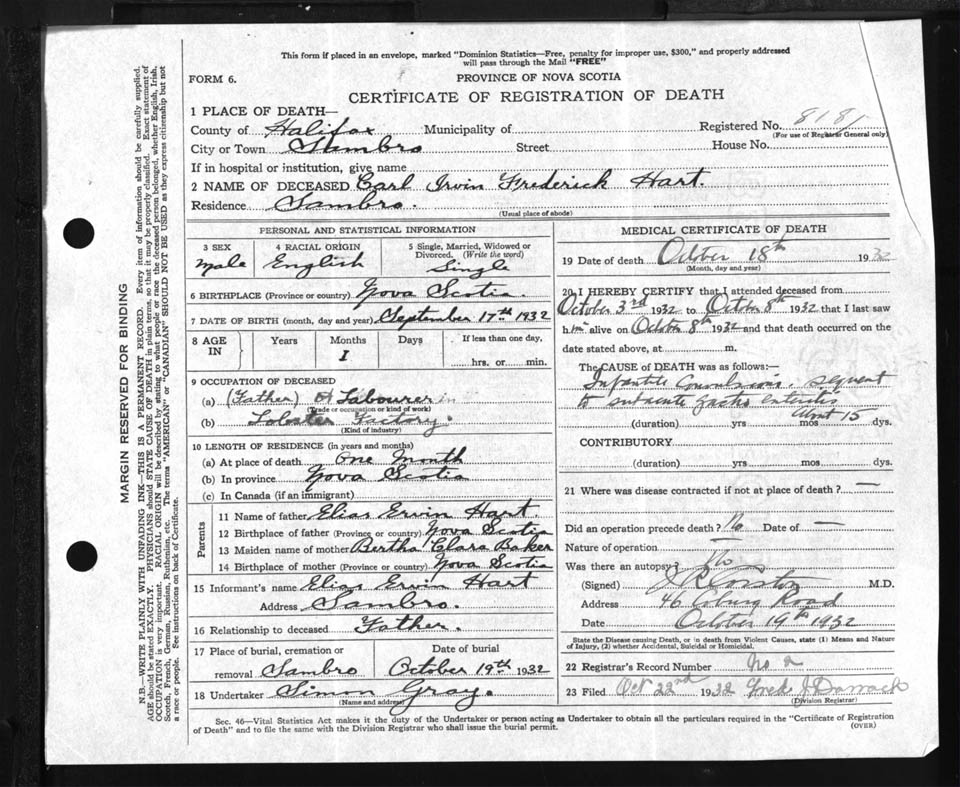 This form if placed in an envelope, marked "Dominion Statistics—Free, penalty for improper use, $300," and properly addressed
will pass through the Mail "FREE"
FORM 6. PROVINCE OF NOVA SCOTIA
CERTIFICATE OF REGISTRATION OF DEATH
1 PLACE OF DEATH—
County of Halifax Municipality of Registered No. 8181
(For use of Registrar General only)
City or Town Sambro Street House No.
If in hospital or institution, give name
2 NAME OF DECEASED Carl Irvin Frederick Hart.
Residence Sambro.
(Usual place of abode)
PERSONAL AND STATISTICAL INFORMATION
3 SEX 4 RACIAL ORIGIN 5 Single, Married, Widowed or
Divorced. (Write the word)
Male English Single
6 BIRTHPLACE (Province or country) Nova Scotia.
7 DATE OF BIRTH (month, day and year) September 17th 1932
8 AGE IN Years Months Days If less than one day,
1 hrs. or min.
9 OCCUPATION OF DECEASED
(a) (Father) Labourer in
(Trade or occupation or kind of work)
(b) Lobster Factory.
(Kind of industry)
10 LENGTH OF RESIDENCE (in years and months)
(a) At place of death one Month
(b) In province Nova Scotia
(c) In Canada (if an immigrant)
Parents
11 Name of father Elias Ervin Hart
12 Birthplace of father (Province or country) Nova Scotia
13 Maiden name of mother Bertha Clara Baker
14 Birthplace of mother (Province or country) Nova Scotia
15 Informant's name Elias Ervin Hart
Address Sambro.
16 Relationship to deceased Father.
17 Place of burial, cremation or Date of burial
removal Sambro October 19th 1932
18 Undertaker Simon Gray.
(Name and address)
MEDICAL CERTIFICATE OF DEATH
19 Date of death October 18th 1932
(Month, day and year)
20 I HEREBY CERTIFY that I attended deceased from
October 3rd 1932 to October 8th 1932 that I last saw
him alive on October 8th 1932 and that death occurred on the
date stated above, at m.
The CAUSE OF DEATH was as follows:—
Infantile Convulsions. sequent
to subacute gastro enteritis
about 15
(duration) yrs mos dys.
CONTRIBUTORY
(duration) yrs mos dys.
21 Where was disease contracted if not at place of death? —
Did an operation precede death? No Date of —
Nature of operation —
Was there an autopsy? No
(Signed) M.D.
Address 46 Coburg Road
Date October 19th 1932
State the Disease causing Death, or in death from Violent Causes, state (1) Means and Nature
of Injury, (2) whether Accidental, Suicidal or Homicidal.
22 Registrar's Record Number No 2
23 Filed Oct 22nd 1932 Fred J Darrach
(Division Registrar)
Sec. 46—Vital Statistics Act makes it the duty of the Undertaker or person acting as Undertaker to obtain all the particulars required in the "Certificate of Registration
of Death" and to file the same with the Division Registrar who shall issue the burial permit.
(OVER)
MARGIN RESERVED FOR BINDING
N.B.—WRITE PLAINLY WITH UNFADING INK—THIS IS A PERMANENT RECORD. Every item of information should be carefully supplied.
AGE should be stated EXACTLY. PHYSICIANS should STATE CAUSE OF DEATH in plain terms, so that it may be properly classified. Exact statement of
OCCUPATION is very important. RACIAL ORIGIN will be described by stating to what people or race the deceased person belonged, whether English, Irish,
Scotch, French, German, Russian, Ruthenian, etc. The terms "AMERICAN" or "CANADIAN" SHOULD NOT BE USED as they express citizenship but not
a race or people. See instructions on back of Certificate.